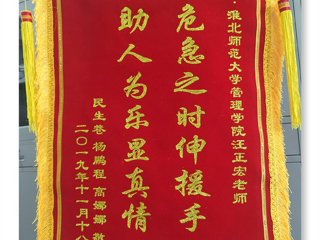 ·淮北师范大学管理学院汪正宏老师
危急之时伸援手
助人为乐显真情
民生巷 杨鹏程 高娜娜 敬
二〇一九年十一月十八